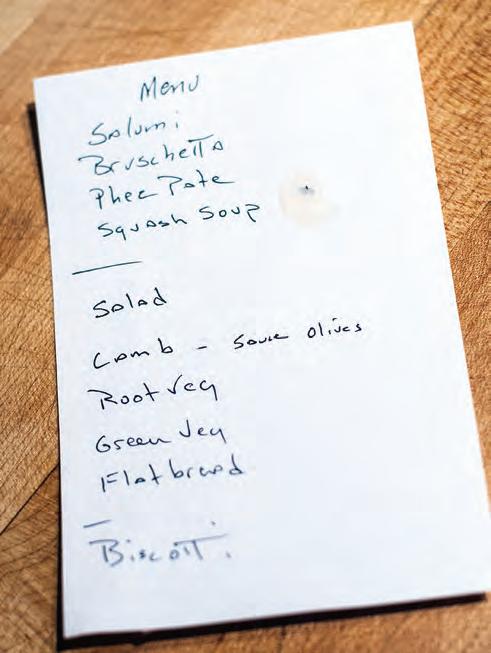 Menu
Salumi
Bruschetta
Phez Pate
Squash Soup
Salad
Lamb - Sauce Olives
Root Veg
Green Veg
Flatbread
Biscotti